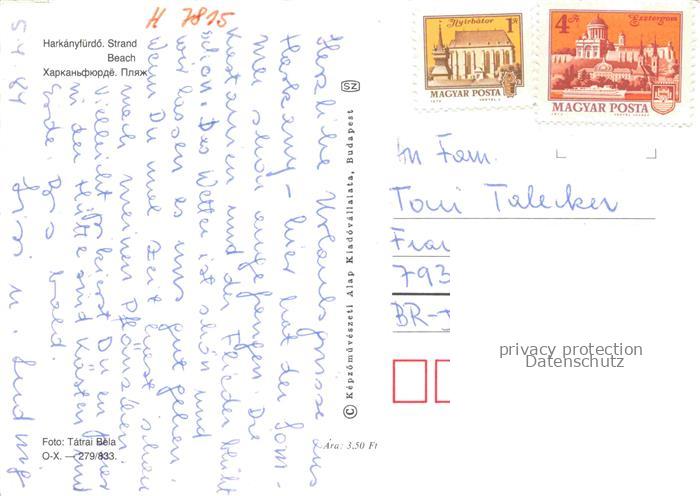 H 7815
Harkányfürdő. Strand
Beach
Харканьфюрдё. Пляж
5.4.84
Herzliche Urlaubsgrüsse aus
Harkany - hier hat der Som-
mer schon angefangen. Die
Kastanien und der Flieder blüht
schon. Das Wetter ist schön und
wir lassen es uns gut gehen.
Wenn Du mal Zeit hast schau
nach meinen Pflänzchen.
Vielleicht Du
in der Hütte sind Kästen und
Erde. Bis bald.
u. Ludwig
Foto: Tátrai Béla
O-X. — 279/833.
SZ
© Képzőművészeti Alap Kiadóvállalata, Budapest
Ára: 3,50 Ft
Nyírbátor
1 Ft
MAGYAR POSTA
Esztergom
4 Ft
MAGYAR POSTA
An Fam.
Toni
793
BR-
privacy protection
Datenschutz